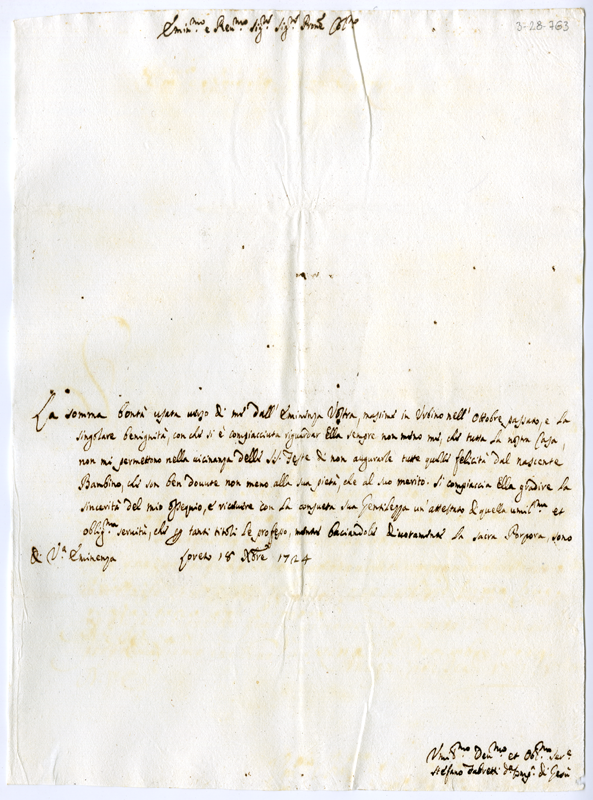 3-28-763
Emin.mo e Reu.mo Sig.r Sig.r Pron.e Col.mo
La somma bontà usata uerso di me dall' Eminenza Vostra, massime in Vrbino nell' Ottobre passato, e la
singolare benignità, con che si è compiacciuta riguardar Ella sempre non meno me, che tutta la nostra Casa,
non mi permettono nella uicinanza delle S.te Feste di non augurarle tutte quelle felicità dal nascente
Bambino, che son ben douute non meno alla sua pietà, che al suo merito. Si compiaccia Ella gradire la
sincerità del mio ossequio, e riceuere con la consueta sua Gentilezza un' attestato di quella umil.ma et
oblig.ma seruitù, che p tanti titoli le professo, mentre baciandole diuotamente la sacra Porpora, sono
Di V.a Eminenza Loreto 18 Xbre 1724
Vmil.mo Deu.mo et Obl.mo Ser.e
Stefano di Gesù